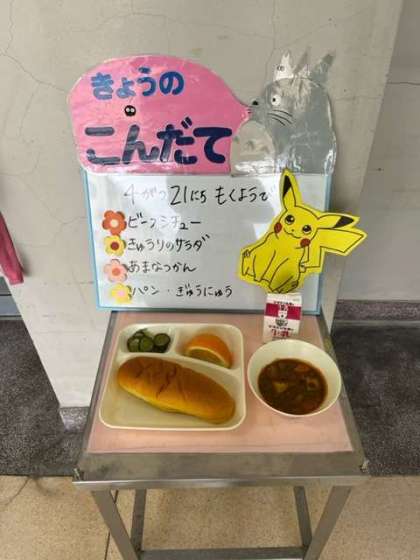 きょうの
こんだて
4がつ 21にち もくようび
ビーフシチュー
きゅうりのサラダ
あまなつかん
パン・ぎゅうにゅう
牛乳